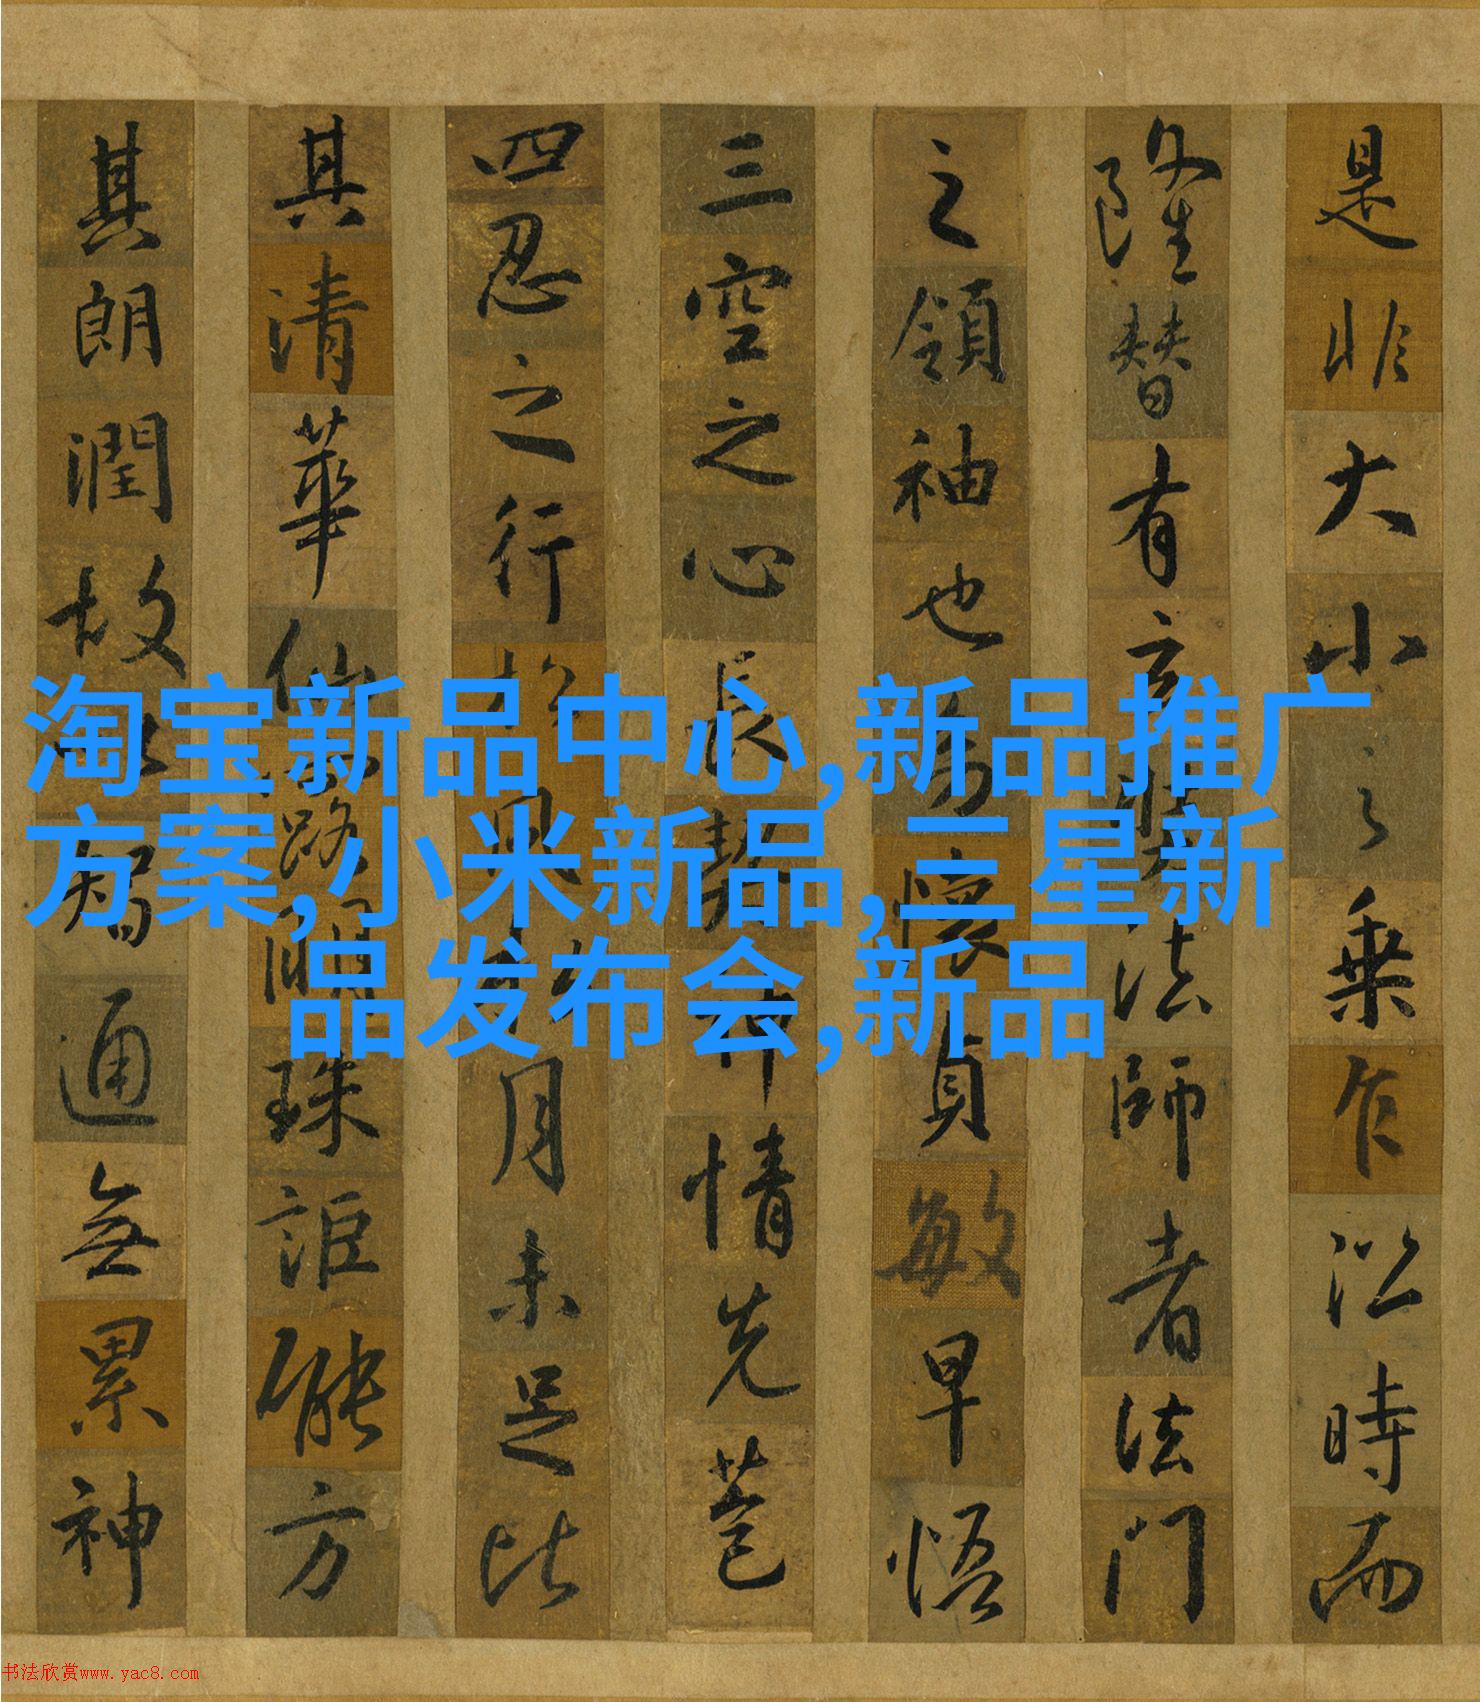 是非大小之乘乍沿時而
隆替有玄奘法師者法門
之領袖也幼懷貞敏早悟
三空之心長契神情先苞
四忍之行松風水月未足比
其清華仙露明珠詎能方
其朗潤故以智通無累神
淘宝新品中心,新品推广
方案,小米新品,三星新
品发布会,新品
书法欣赏www.yac8.com